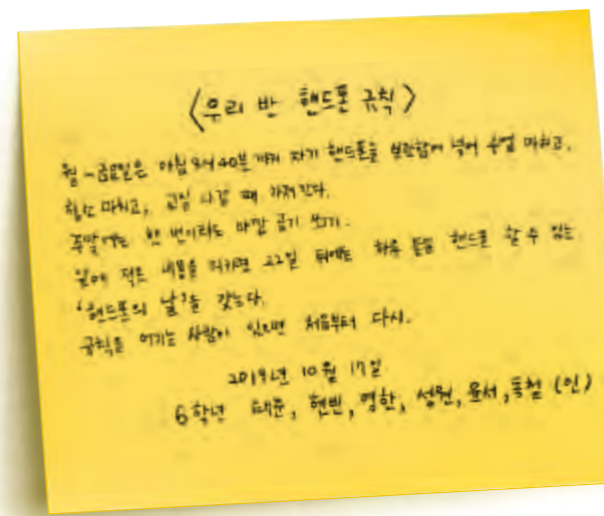 <우리 반 핸드폰 규칙>
월~금요일은 아침 8시 40분까지 자기 핸드폰을 보관함에 넣어 수업 마치고,
청소 마치고, 교실 나갈 때 가져간다.
주말에는 한 번이라도 바깥 공기 쐬기.
앞에 적은 내용을 지키면 22일 뒤에는 하루 동안 핸드폰 할 수 있는
'핸드폰의 날'을 갖는다.
규칙을 어기는 사람이 있으면 처음부터 다시.
2019년 10월 17일
6학년 태준, 현빈, 영한, 성원, 윤서, 동철 (인)